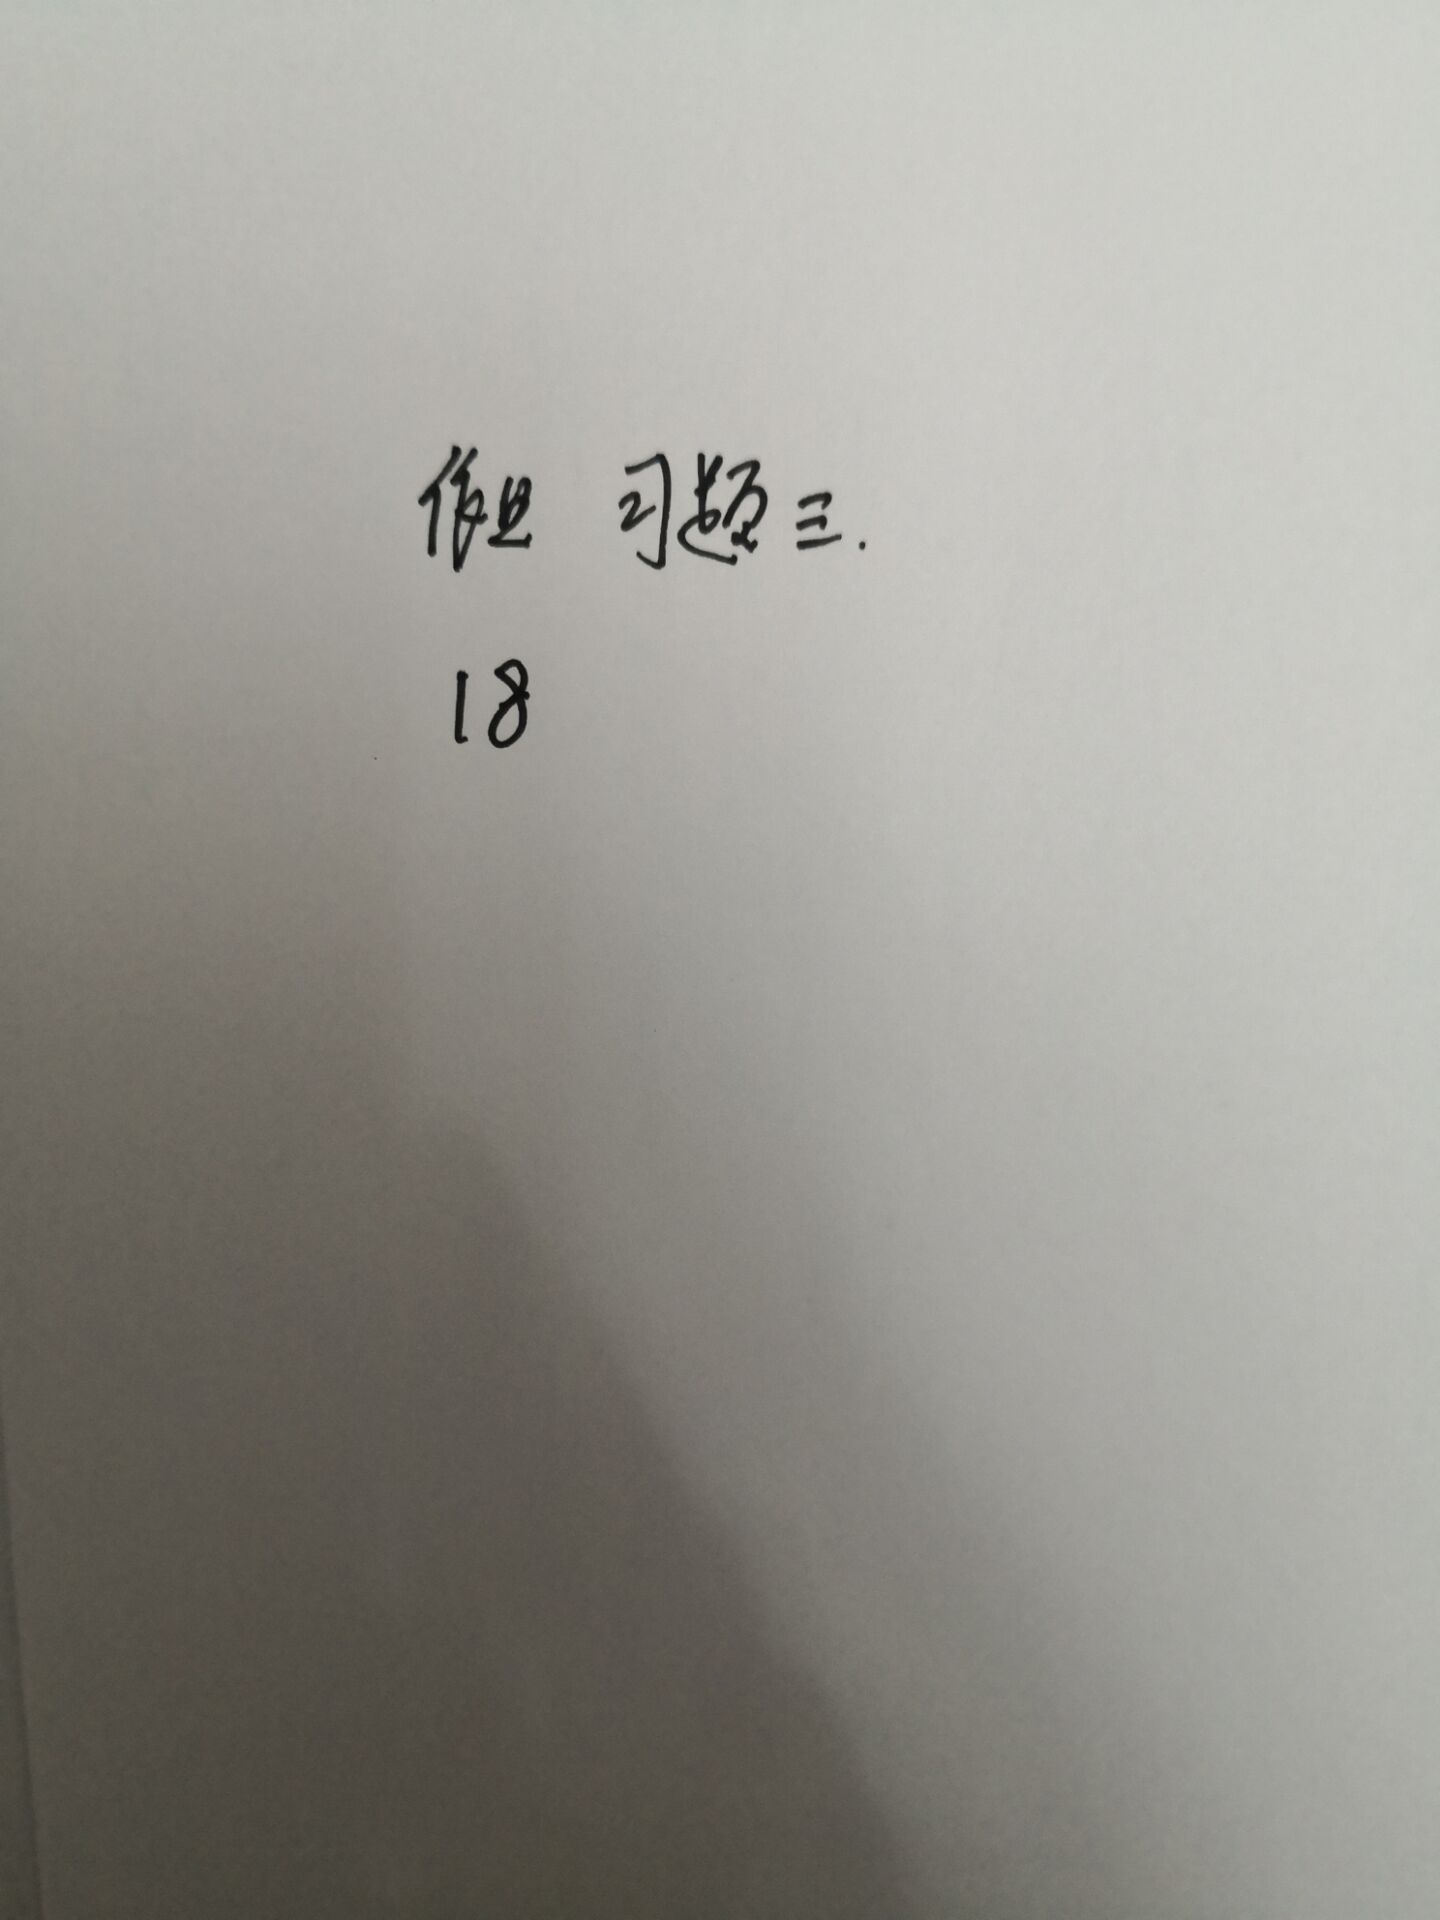 作业 习题三.
18